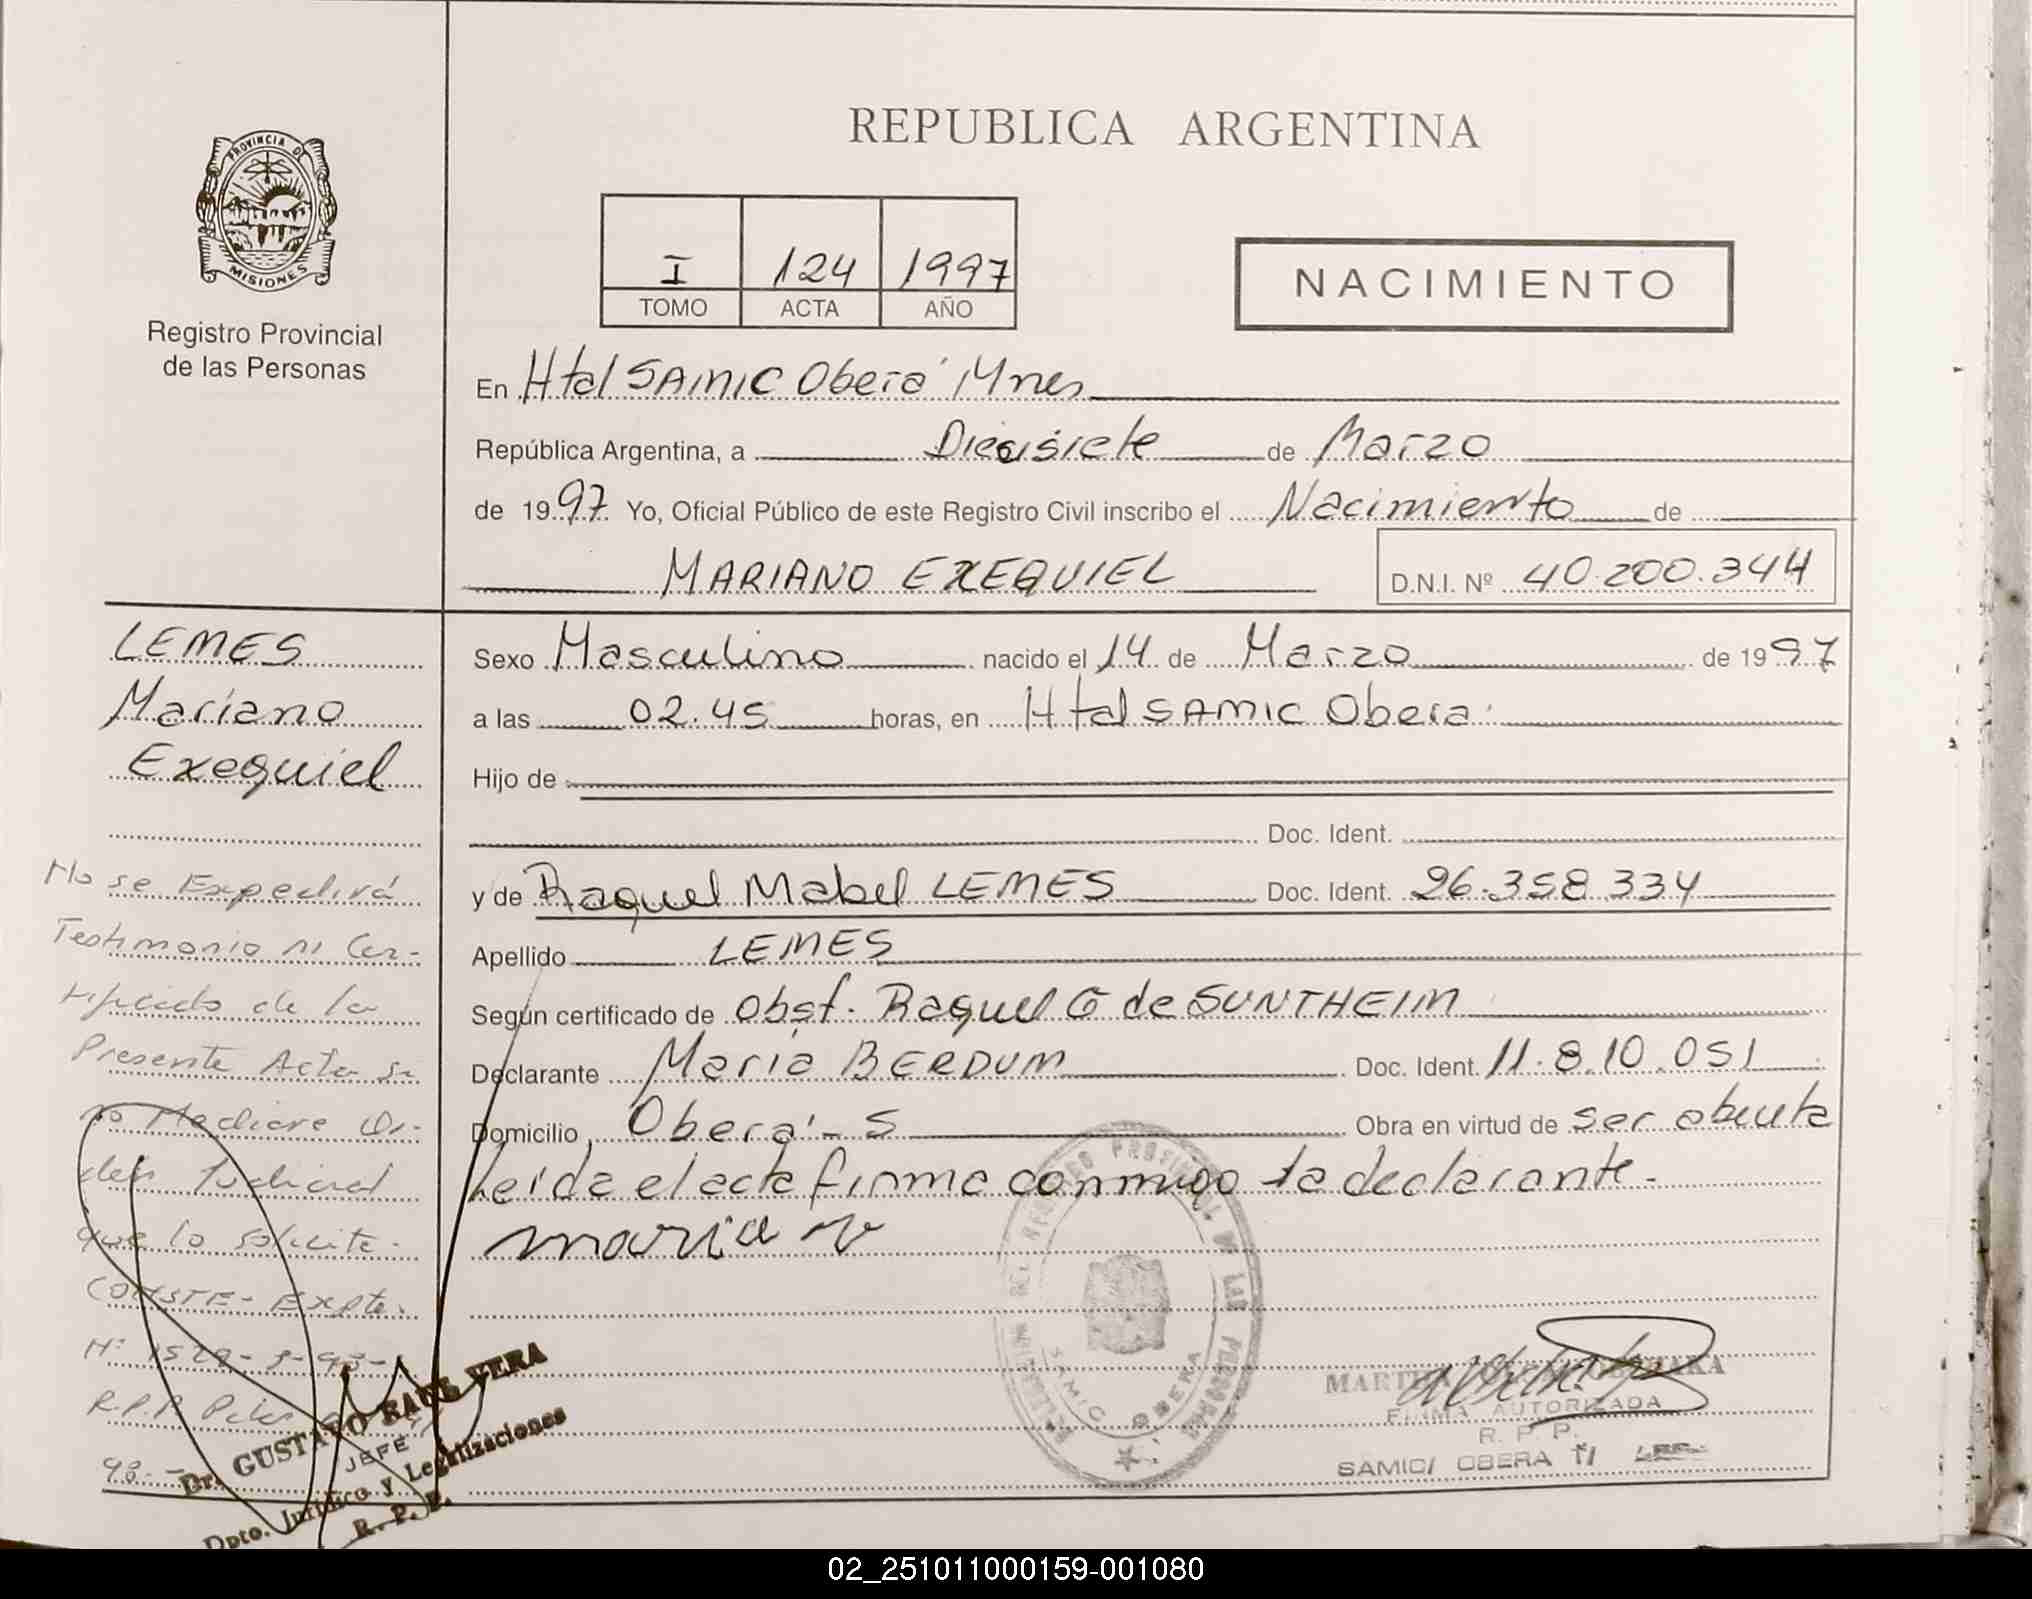 PROVINCIA DE
MISIONES
Registro Provincial
de las Personas
REPUBLICA ARGENTINA
I 124 1997
TOMO ACTA AÑO
NACIMIENTO
En Htal SAMIC Oberá Mnes
República Argentina, a Diecisiete de Marzo
de 1997 Yo, Oficial Público de este Registro Civil inscribo el Nacimiento de
MARIANO EXEQUIEL D.N.I. Nº 40.200.344
LEMES
Mariano
Exequiel
Sexo Masculino nacido el 14 de Marzo de 1997
a las 02.45 horas, en Htal SAMIC Oberá
Hijo de
Doc. Ident.
y de Raquel Mabel LEMES Doc. Ident. 26.358.334
Apellido LEMES
Según certificado de Obst. Raquel G de SUNTHEIM
Declarante María BERDUM Doc. Ident. 11.810.051
Domicilio Oberá - S Obra en virtud de ser abuela
Leida el acta firma conmigo la declarante.
maria
No se Expedirá
Testimonio ni Cer-
tificado de la
Presente Acta si
no Mediare Or-
den Judicial
que lo solicite.
CONSTE - Expte.
R.P.P.
98.-
Dr. GUSTAVO RAUL VERA
JEFE
Dpto. Jurídico y Legalizaciones
R. P. P.
SAMIC OBERA
FIRMA AUTORIZADA
R. P. P.
SAMIC/ OBERA
02_251011000159-001080